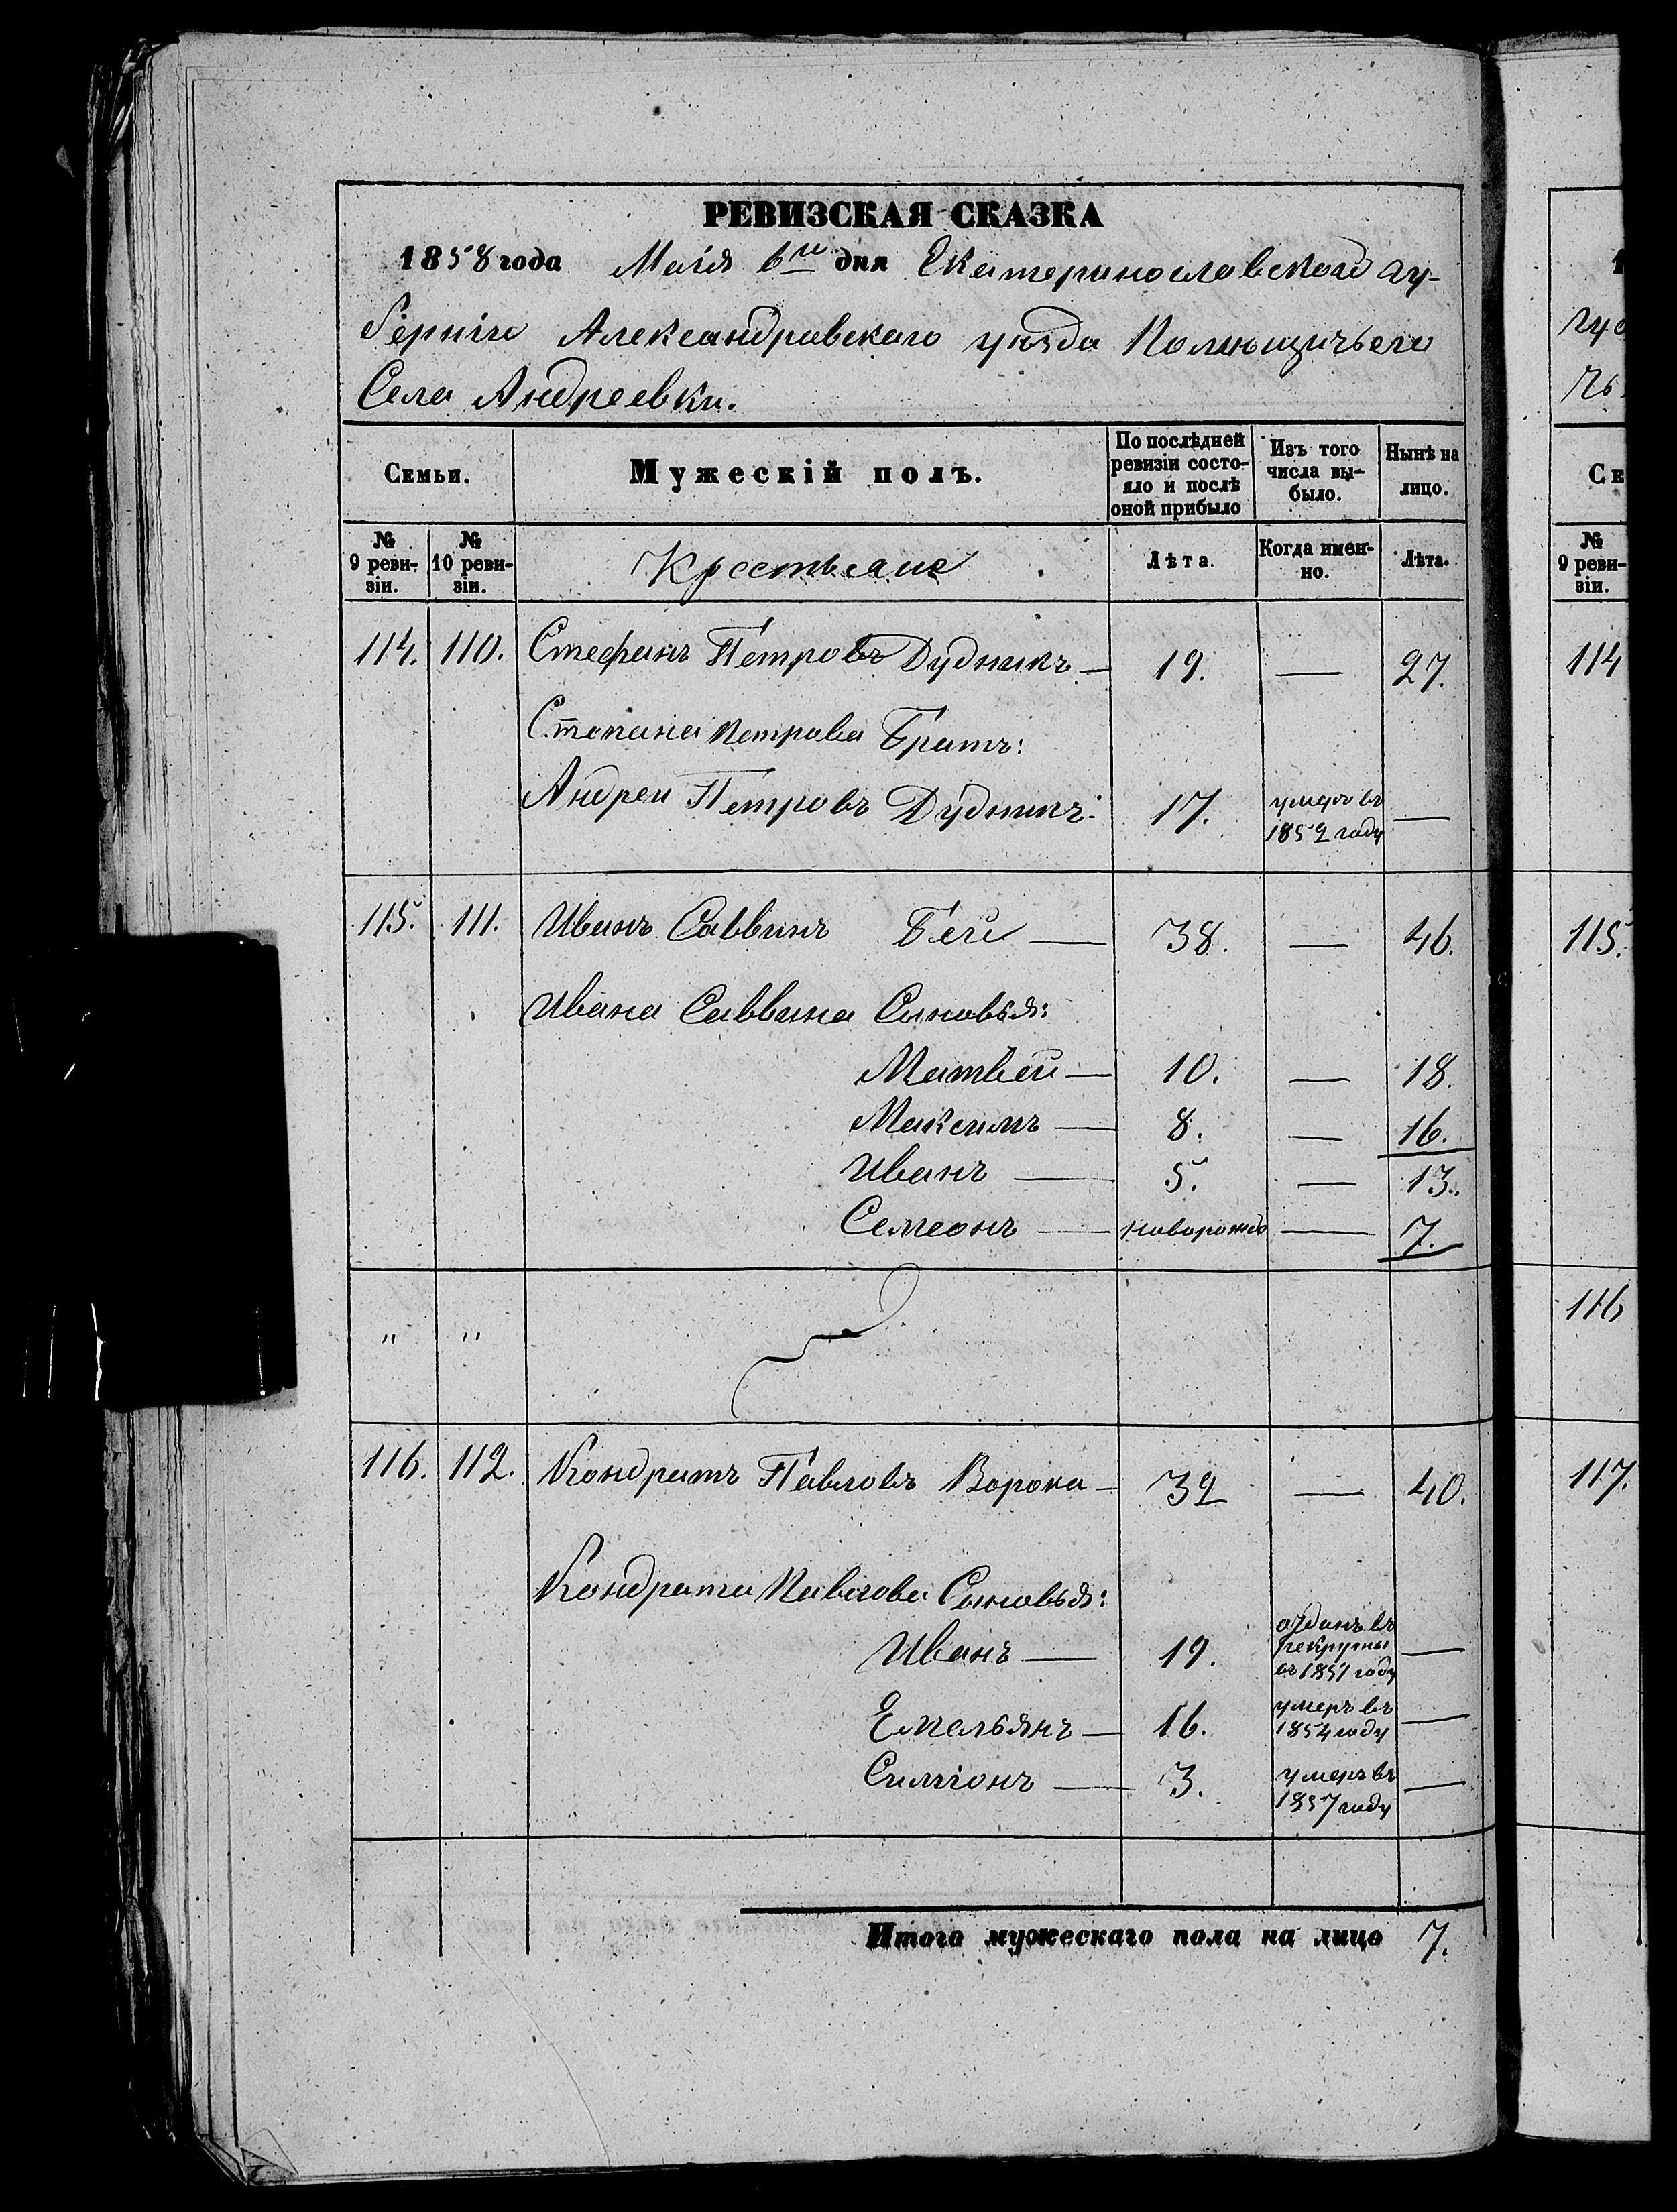 РЕВИЗСКАЯ СКАЗКА
1858 года Маія 6го дня Екатеринославской гу-
берніи Александровскаго уѣзда Помѣщичьяго
Села Андреевки.
Семьи. Мужескій полъ. По послѣдней ревизіи состо-яло и послѣ оной прибыло Изъ того числа вы-было. Нынѣ на лицо.
№ 9 реви-зіи. № 10 реви-зіи. Крестьяне Лѣта. Когда имен-но. Лѣта.
114. 110. Стефанъ Петровъ Дудникъ — 19. — 27.
Степана Петрова Братъ:
Андрей Петровъ Дудникъ. 17. умеръ въ 1852 году —
115. 111. Иванъ Саввинъ Бей — 38. — 46.
Ивана Саввина Сыновья:
Матвей — 10. — 18.
Максимъ — 8. — 16.
Иванъ — 5. — 13.
Семеонъ — новорожд — 7.
" "
116. 112. Кондратъ Павловъ Ворона — 32 — 40.
Кондрата Павлова Сыновья:
Иванъ — 19. отданъ въ рекруты въ 1851 году —
Емельянъ — 16. умеръ въ 1854 году —
Симіонъ — 3. умеръ въ 1857 году —
Итого мужескаго пола на лицо 7.
1
гуе
чь
Се
№
9 реви-
зіи.
114
115.
116
117.